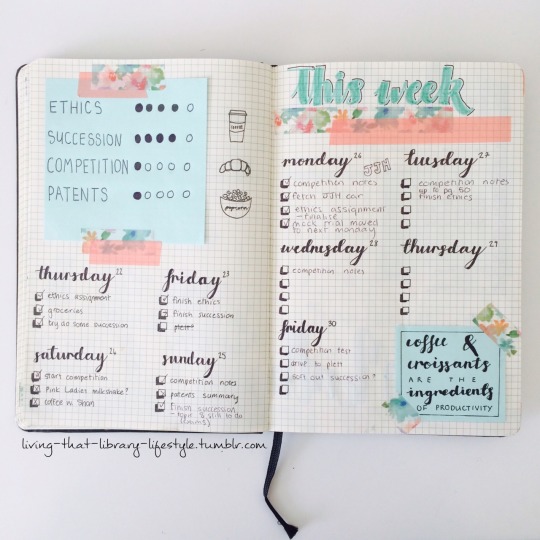 ETHICS
SUCCESSION
COMPETITION
PATENTS
COFFEE
popcorn
thursday 22
ethics assignment
groceries
try do some succession
friday 23
finish ethics
finish succession
saturday 24
start competition
Pink Ladies milkshake?
coffee w/ Shan
sunday 25
competition notes
patents summary
finish succession
This week
monday 26
JJH
competition notes
fetch JJH car
ethics assignment
- finalise
mock trial moved
to next monday
tuesday 27
competition notes
up to pg 50
finish ethics
wednesday 28
competition notes
thursday 29
friday 30
competition test
drive to plett
sort out succession?
coffee &
croissants
ARE THE
ingredients
OF PRODUCTIVITY
living-that-library-lifestyle.tumblr.com